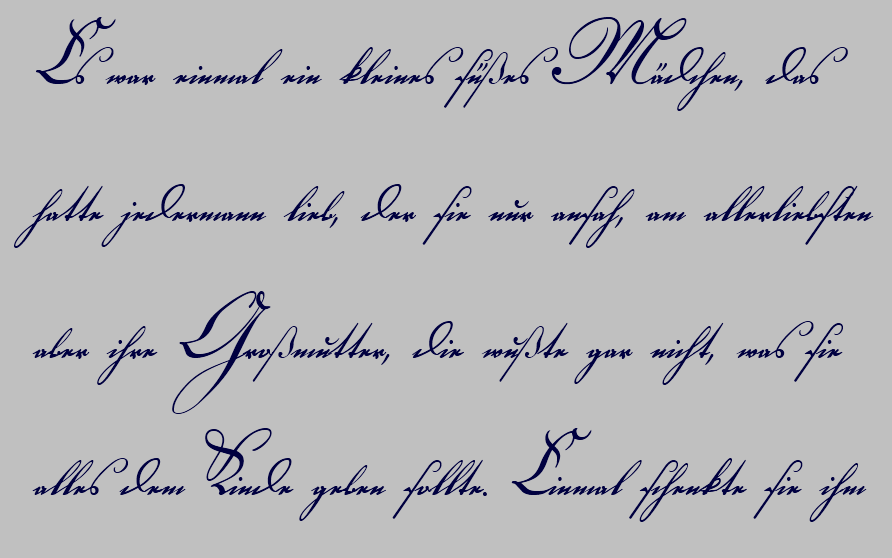 Es war einmal ein kleines süßes Mädchen, das
hatte jedermann lieb, der sie nur ansah, am allerliebsten
aber ihre Großmutter, die wußte gar nicht, was sie
alles dem Kinde geben sollte. Einmal schenkte sie ihm